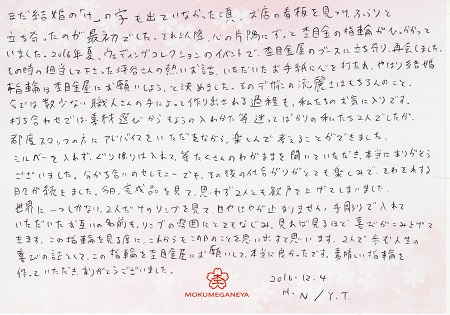 まだ結婚の「け」の字も出ていなかった頃、お店の看板を見つけ、ふらりと
立ち寄ったのが最初でした。それ以降、心の片隅にずっと杢目金の指輪がひっかかって
いました。2016年夏、ウェディングコレクションのイベントで、杢目金屋のブースに立ち寄り、再会しました。
その時の担当して下さった坪谷さんの熱いお話、いただいたお手紙に心を打たれ、やはり結婚
指輪は杢目金屋にお願いしよう、と決めました。そのデザインの流麗さはもちろんのこと、
今では数少ない職人さんの手によって作り出される過程も、私たちのお気に入りです。
打ち合わせでは、素材選びからもようの入れかた等、迷ってばかりの私たち2人でしたが、
都度スタッフの方にアドバイスをいただきながら、楽しんで考えることができました。
シルバーを入れず、ぐり掘りは入れて、等たくさんのわがままを聞いていただき、本当にありがとう
ございました。分かち合いのセレモニーでも、その後の仕上がりがとても楽しみで、そわそわする
日々が続きました。今日、完成品を見て、思わず2人とも歓声を上げてしまいました。
世界に一つしかない、2人だけのリングを見て、にやにやが止まりません。手彫りで入れて
いただいたお互いの名前も、リングの雰囲にとてもなじみ、見れば見るほど喜びがこみ上げて
きます。この指輪を見る度に、これからもこの日のことを思い出すと思います。2人で歩む人生の
喜びの証として、この指輪を杢目金屋にお願いして、本当に良かったです。素晴しい指輪を
作っていただき、ありがとうございました。
2016.12.4
H.N/Y.T.
MOKUMEGANEYA